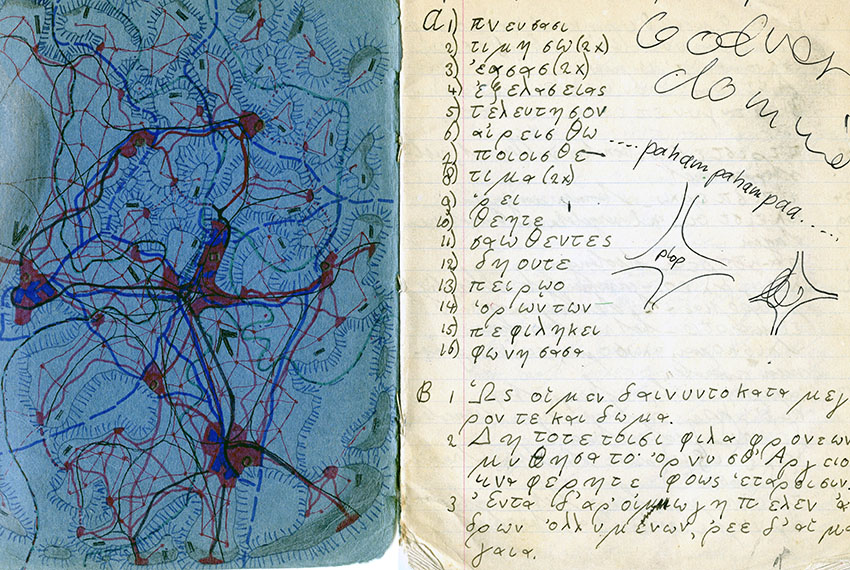 A 1) πνευσασι
2) τιμησω (2x)
3) ἐασας (2x)
4) ἐξελασειας
5) τελευτησον
6) αἱρεισθω
7) ποιοισθε
8) τιμα (2x)
9) ὁρει
10) θεητε
11) σαωθεντες
12) δηουτε
13) πειρωο
14) ὁρωντων
15) πεφιληκει
16) φωνησασα
.... pahampahampaa.....
plop
B 1 Ὡς οἱ μεν δαινυντο κατα μεγ
ροντε και δωμα.
2 Δη τοτε τοισι φιλα φρονεων
μυθησατο· ὀρνυσθ' Ἀργειο
φερητε φοως ἑταροισιν.
3 Ἐντα δ' αρ' οἰμωγη πελεν ἀ
δρων ὀλλυμενων, ῥεε δ' αἱμα
γαια.